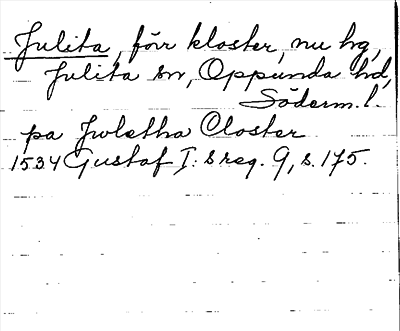 Julita, förr kloster, nu hg,
Julita sn, Oppunda hd,
Söderm. l.
pa Jwletha Closter
1534 Gustaf I:s reg. 9, s. 175.